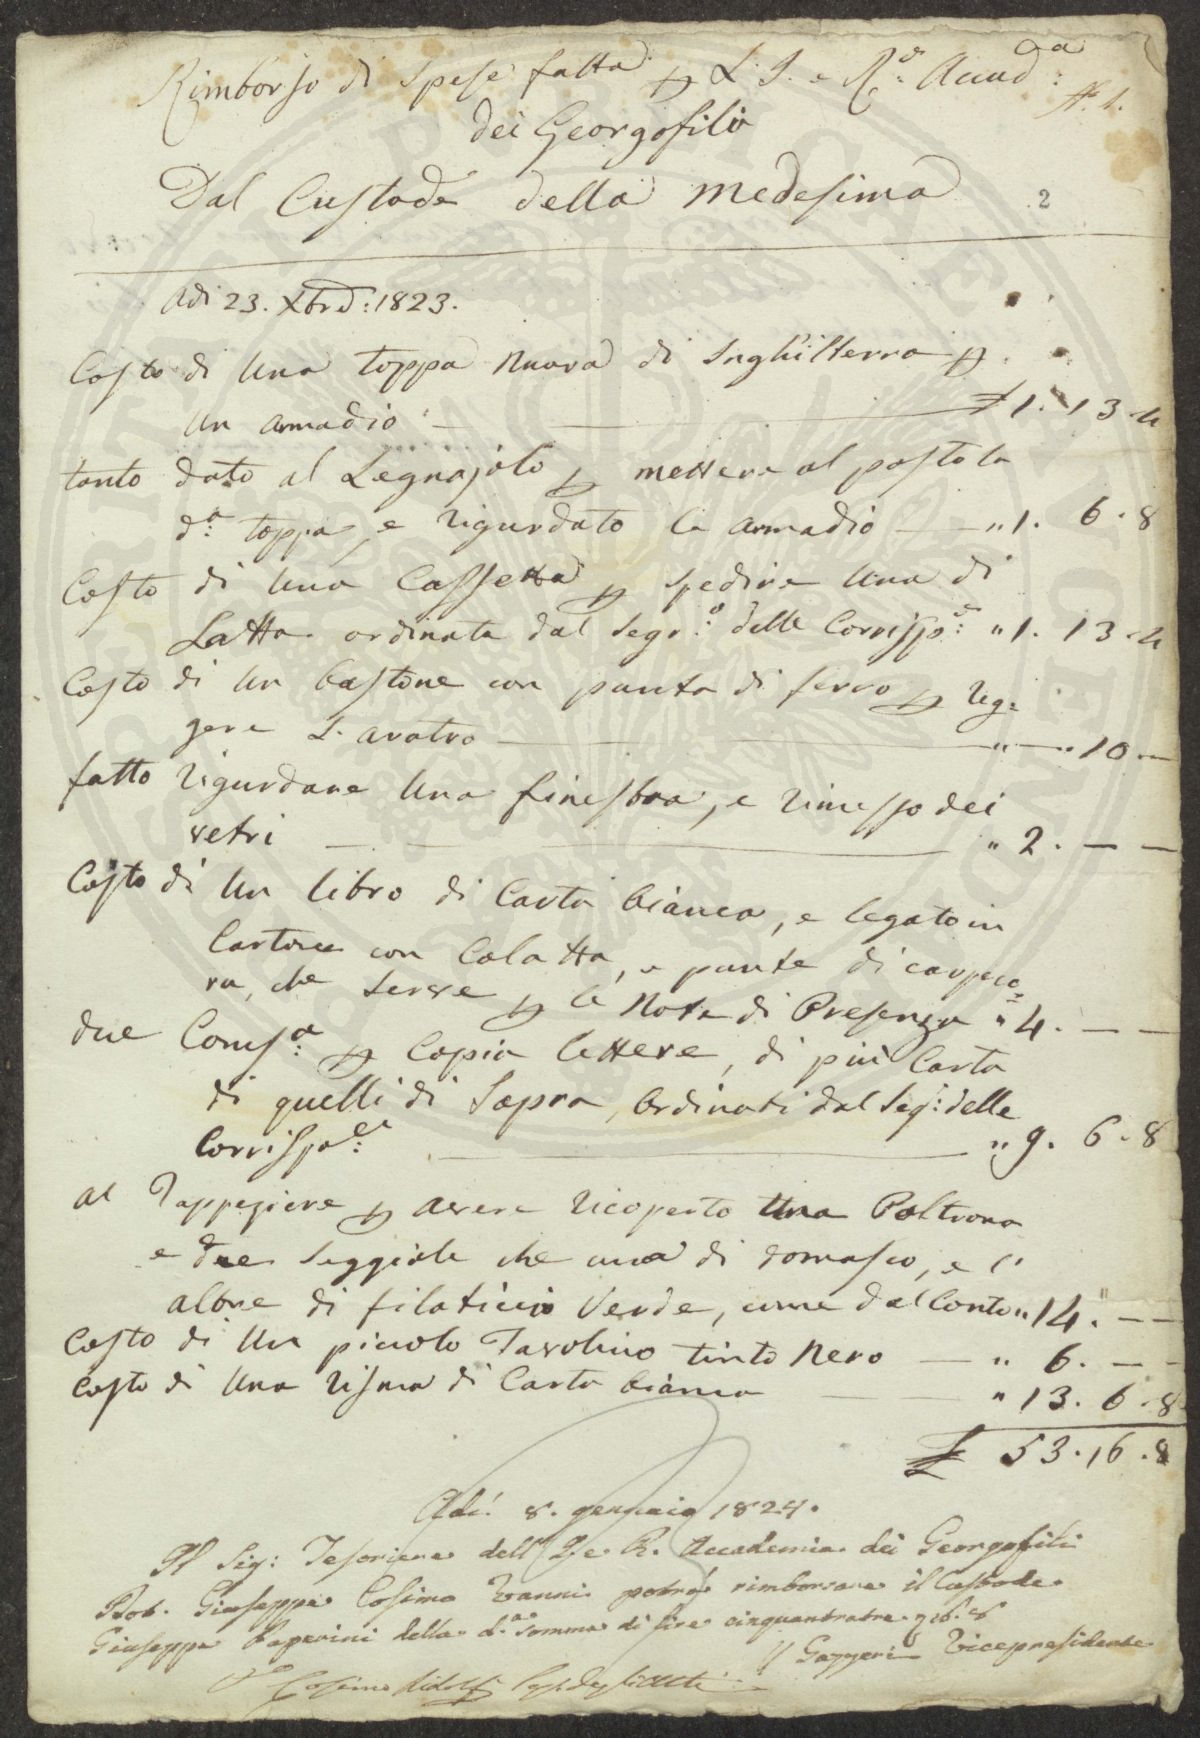 Rimborso di Spese fatta p L' I. e R.e Accad.a
N. 1.
dei Georgofili
Dal Custode della Medesima
2
Adi 23. Xbre: 1823.
Costo di Una toppa Nuova di Inghilterra p
Un Armadio £ 1. 13. 4
tanto dato al Legnajolo p mettere al posto la
d.a toppa, e rigurdato le Armadio " 1. 6. 8
Costo di Una Cassetta p spedire Una di
Latta ordinata dal Segr.o delle Corrisp.e " 1. 13. 4
Costo di Un bastone con punta di ferro p reg=
gere L. aratro " — " 10 —
fatto rigurdare Una finestra, e rimesso dei
vetri " 2. — —
Costo di Un libro di Carta bianca, e legato in
Cartone con Colatta, e punte di carpeco=
ra, che serve p le Note di Presenza " 4. — —
due Coms.a p Copia lettere, di più Carta
di quelli di Sopra, Ordinati dal Seg: delle
Corrispo.e " 9. 6. 8
al Tappeziere p avere ricoperto Una Poltrona
e due Seggiole che una di domasco, e l'
altre di filaticcio Verde, come dal Conto " 14. — —
Costo di Un piccolo Tavolino tinto Nero — " 6. — —
Costo di Una risma di Carta bianca " 13. 6. 8
£ 53. 16. 8
Adi. 8. gennaio 1824.
Il Sig: Tesoriere dell' I. e R. Accademia dei Georgofili
Dot. Giuseppe Cosimo Vanni potrà rimborsare il Custode
Giuseppe Paperini della d.a somma di lire cinquantatre. 16. 8
Gazzeri Vicepresidente
Cosimo Ridolfi Seg. degli Atti